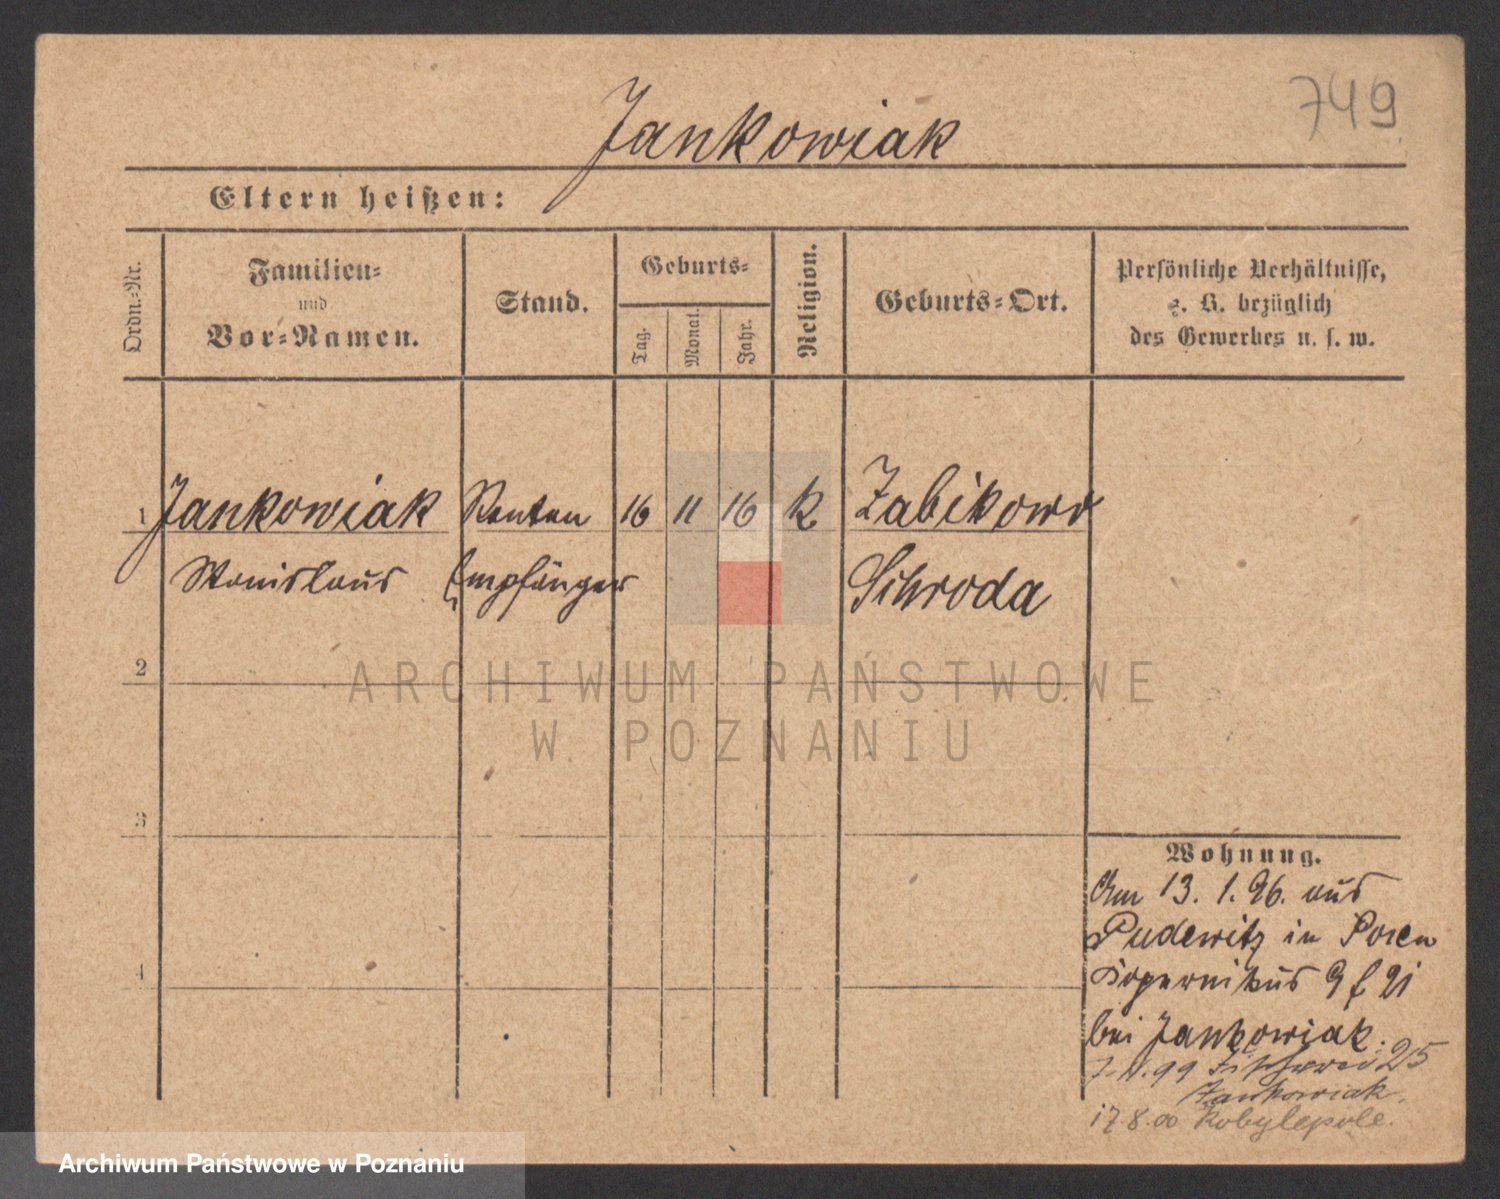 749
Jankowiak
Eltern heißen:
Ordn.=Nr.
Familien=
und
Vor=Namen.
Stand.
Geburts=
Tag.
Monat.
Jahr.
Religion.
Geburts=Ort.
Persönliche Verhältnisse,
z. B. bezüglich
des Gewerbes u. s. w.
1 Jankowiak Renten 16 11 16 k Zabikowo
Stanislaus Empfänger Schroda
2
ARCHIWUM PAŃSTWOWE
W POZNANIU
3
Wohnung.
Am 13. 1. 96. aus
Pudewitz in Posen
4
bei Jankowiak.
25
Jankowiak.
17.8.00 Kobylepole.
Archiwum Państwowe w Poznaniu